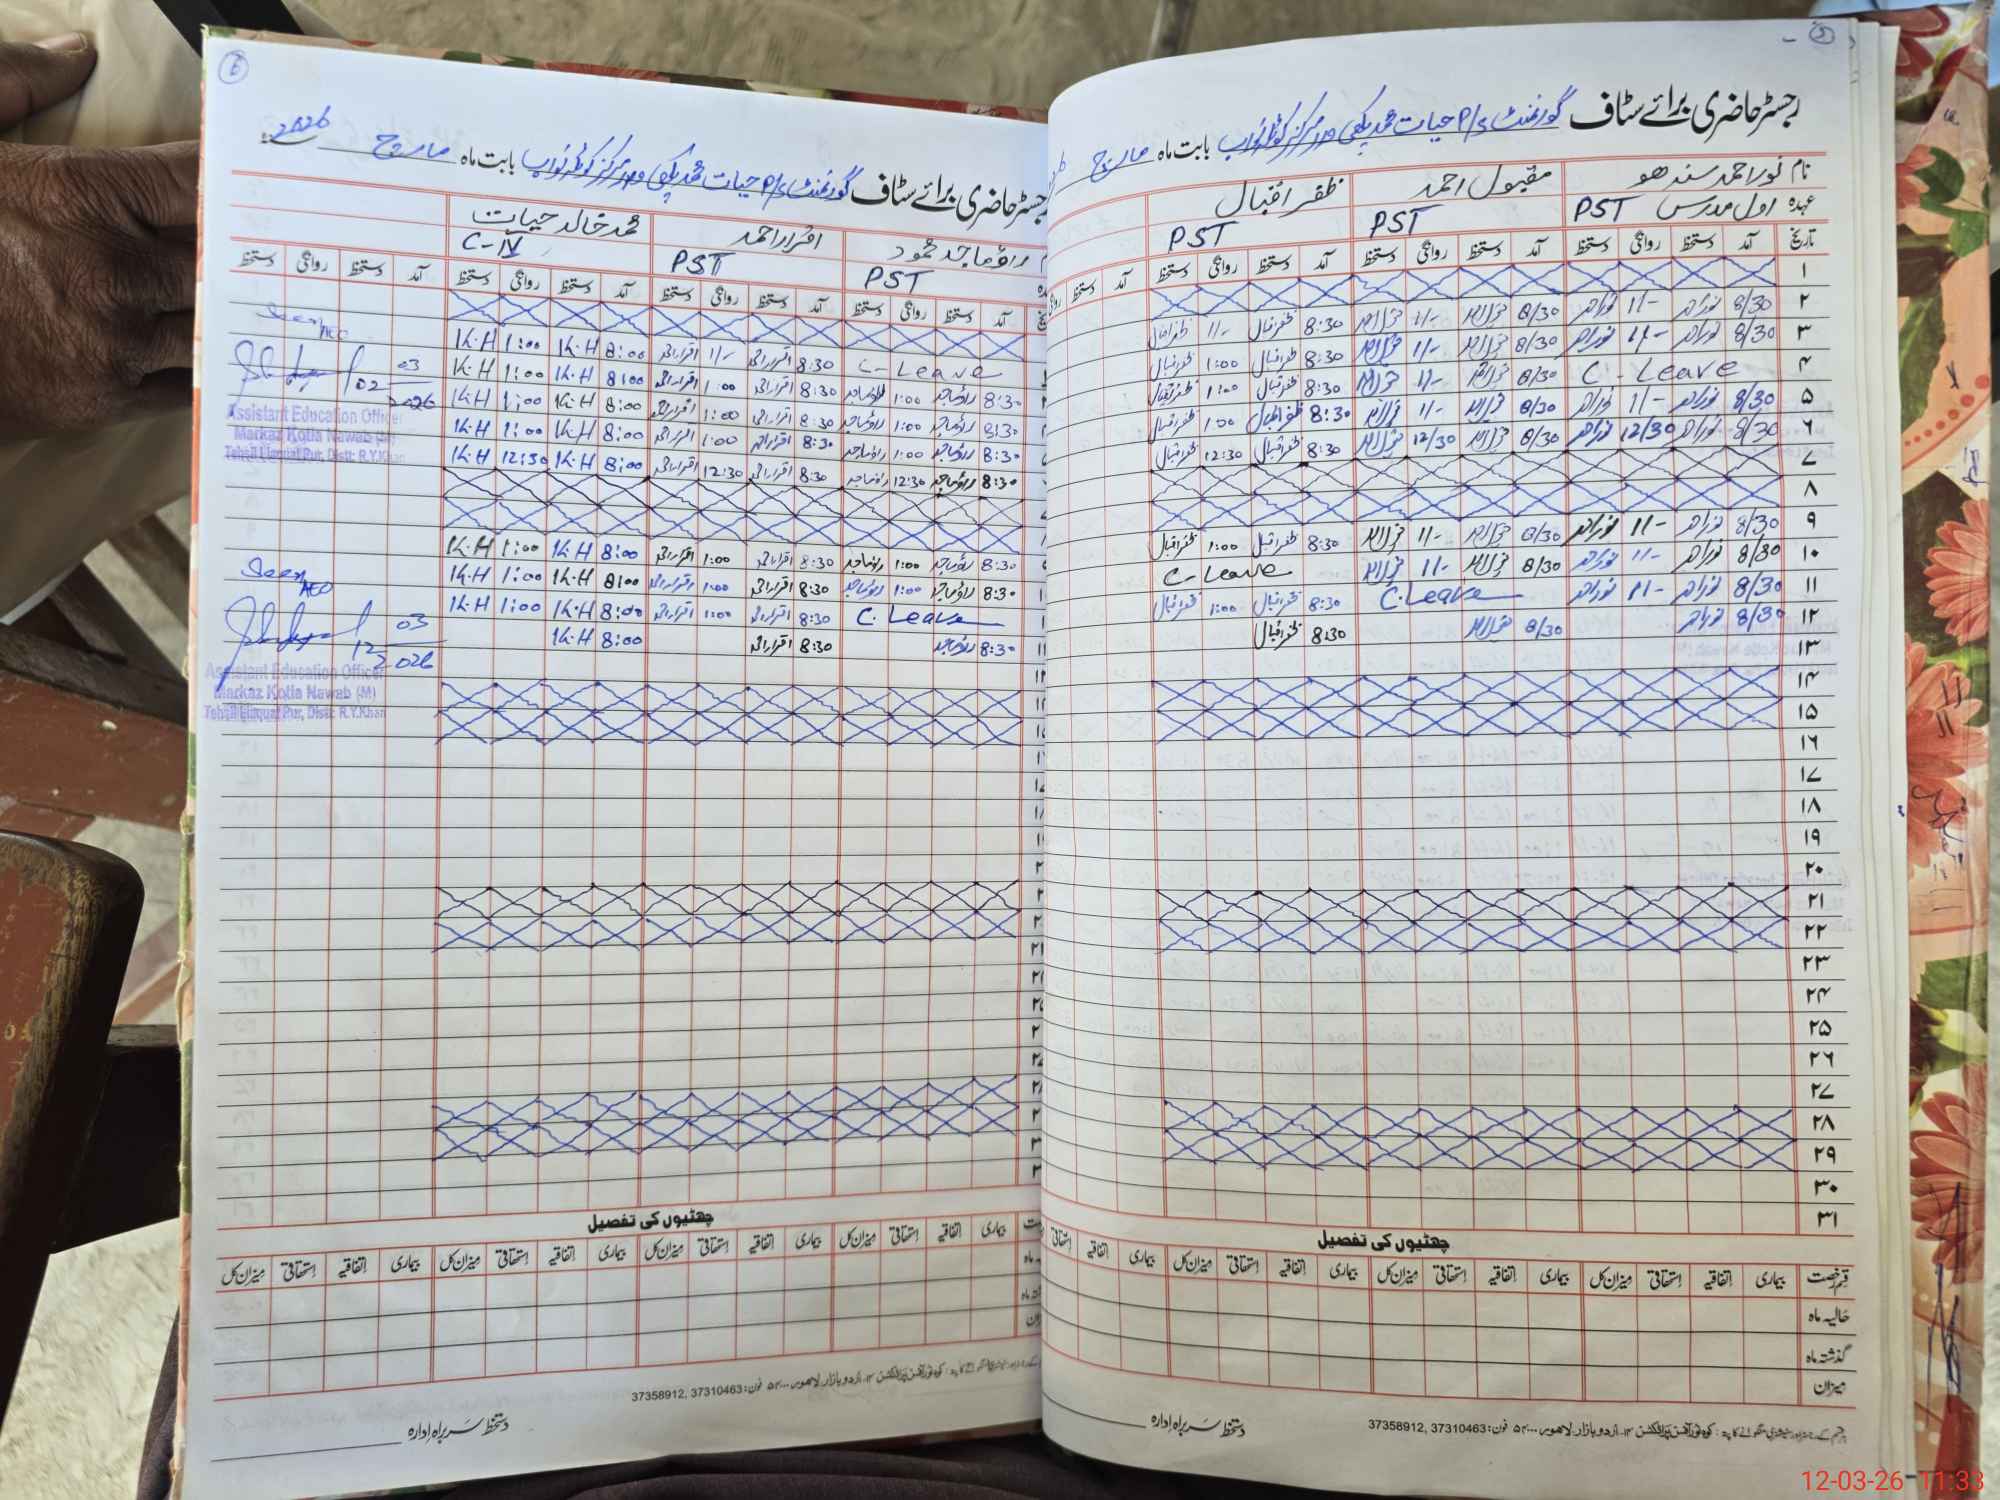 رجسٹر حاضری برائے سٹاف گورنمنٹ P/S حیات محمد مرکز کوٹلہ نواب بابت ماہ مارچ
نام نور احمد سندھو مقبول احمد ظفر اقبال
عہدہ اول مدرس PST PST PST
تاریخ آمد دستخط روانگی دستخط آمد دستخط روانگی دستخط آمد دستخط روانگی دستخط آمد دستخط
۱
۲ 8/30 نور احمد 1/- نور احمد 8/30 1/- 8:30 ظفر اقبال 1/- ظفر اقبال
۳ 8/30 نور احمد 1/- نور احمد 8/30 1/- 8:30 ظفر اقبال 1:00 ظفر اقبال
۴ C-Leave 8/30 1/- 8:30 ظفر اقبال 1:00 ظفر اقبال
۵ 8/30 نور احمد 1/- نور احمد 8/30 1/- 8:30 ظفر اقبال 1:00 ظفر اقبال
۶ 8/30 نور احمد 12/30 نور احمد 8/30 12/30 8:30 ظفر اقبال 12:30 ظفر اقبال
۷
۸
۹ 8/30 نور احمد 1/- نور احمد 8/30 1/- 8:30 ظفر اقبال 1:00 ظفر اقبال
۱۰ 8/30 نور احمد 1/- نور احمد 8/30 1/- C-Leave
۱۱ 8/30 نور احمد 1/- نور احمد C.Leave 8:30 ظفر اقبال 1:00 ظفر اقبال
۱۲ 8/30 نور احمد 8/30 8:30 ظفر اقبال
۱۳
۱۴
۱۵
۱۶
۱۷
۱۸
۱۹
۲۰
۲۱
۲۲
۲۳
۲۴
۲۵
۲۶
۲۷
۲۸
۲۹
۳۰
۳۱
چھٹیوں کی تفصیل
قسم رخصت بیماری اتفاقیہ استحقاقی میزان کل بیماری اتفاقیہ استحقاقی میزان کل بیماری اتفاقیہ استحقاقی میزان کل بیماری اتفاقیہ
حالیہ ماہ
گذشتہ ماہ
میزان
اردو بازار لاہور فون: 37310463, 37358912
دستخط سربراہ ادارہ
رجسٹر حاضری برائے سٹاف گورنمنٹ P/S حیات محمد مرکز کوٹلہ نواب بابت ماہ مارچ 2026
راؤ ماجد محمود اقرار احمد محمد خالد حیات
PST PST C-IV
آمد دستخط روانگی دستخط آمد دستخط روانگی دستخط آمد دستخط روانگی دستخط آمد دستخط روانگی دستخط
C-Leave 8:30 اقرار احمد 1/- اقرار احمد 8:00 K.H 1:00 K.H
8:30 راؤ ماجد 1:00 راؤ ماجد 8:30 اقرار احمد 1:00 اقرار احمد 8:00 K.H 1:00 K.H
8:30 راؤ ماجد 1:00 راؤ ماجد 8:30 اقرار احمد 1:00 اقرار احمد 8:00 K.H 1:00 K.H
8:30 راؤ ماجد 1:00 راؤ ماجد 8:30 اقرار احمد 1:00 اقرار احمد 8:00 K.H 1:00 K.H
8:30 راؤ ماجد 12:30 راؤ ماجد 8:30 اقرار احمد 12:30 اقرار احمد 8:00 K.H 12:30 K.H
8:30 راؤ ماجد 1:00 راؤ ماجد 8:30 اقرار احمد 1:00 اقرار احمد 8:00 K.H 1:00 K.H
8:30 راؤ ماجد 1:00 راؤ ماجد 8:30 اقرار احمد 1:00 اقرار احمد 8:00 K.H 1:00 K.H
C.Leave 8:30 اقرار احمد 1:00 اقرار احمد 8:00 K.H 1:00 K.H
8:30 راؤ ماجد 8:30 اقرار احمد 8:00 K.H
Seen
AEO
02 03
2026
Assistant Education Officer
Markaz Kotla Nawab (M)
Tehsil Liaquat Pur, Distt: R.Y.Khan
Seen
AEO
12 03
2026
Assistant Education Officer
Markaz Kotla Nawab (M)
Tehsil Liaquat Pur, Distt: R.Y.Khan
چھٹیوں کی تفصیل
بیماری اتفاقیہ استحقاقی میزان کل بیماری اتفاقیہ استحقاقی میزان کل بیماری اتفاقیہ استحقاقی میزان کل بیماری اتفاقیہ استحقاقی میزان کل
اردو بازار لاہور فون: 37310463, 37358912
دستخط سربراہ ادارہ
12-03-26 11:33